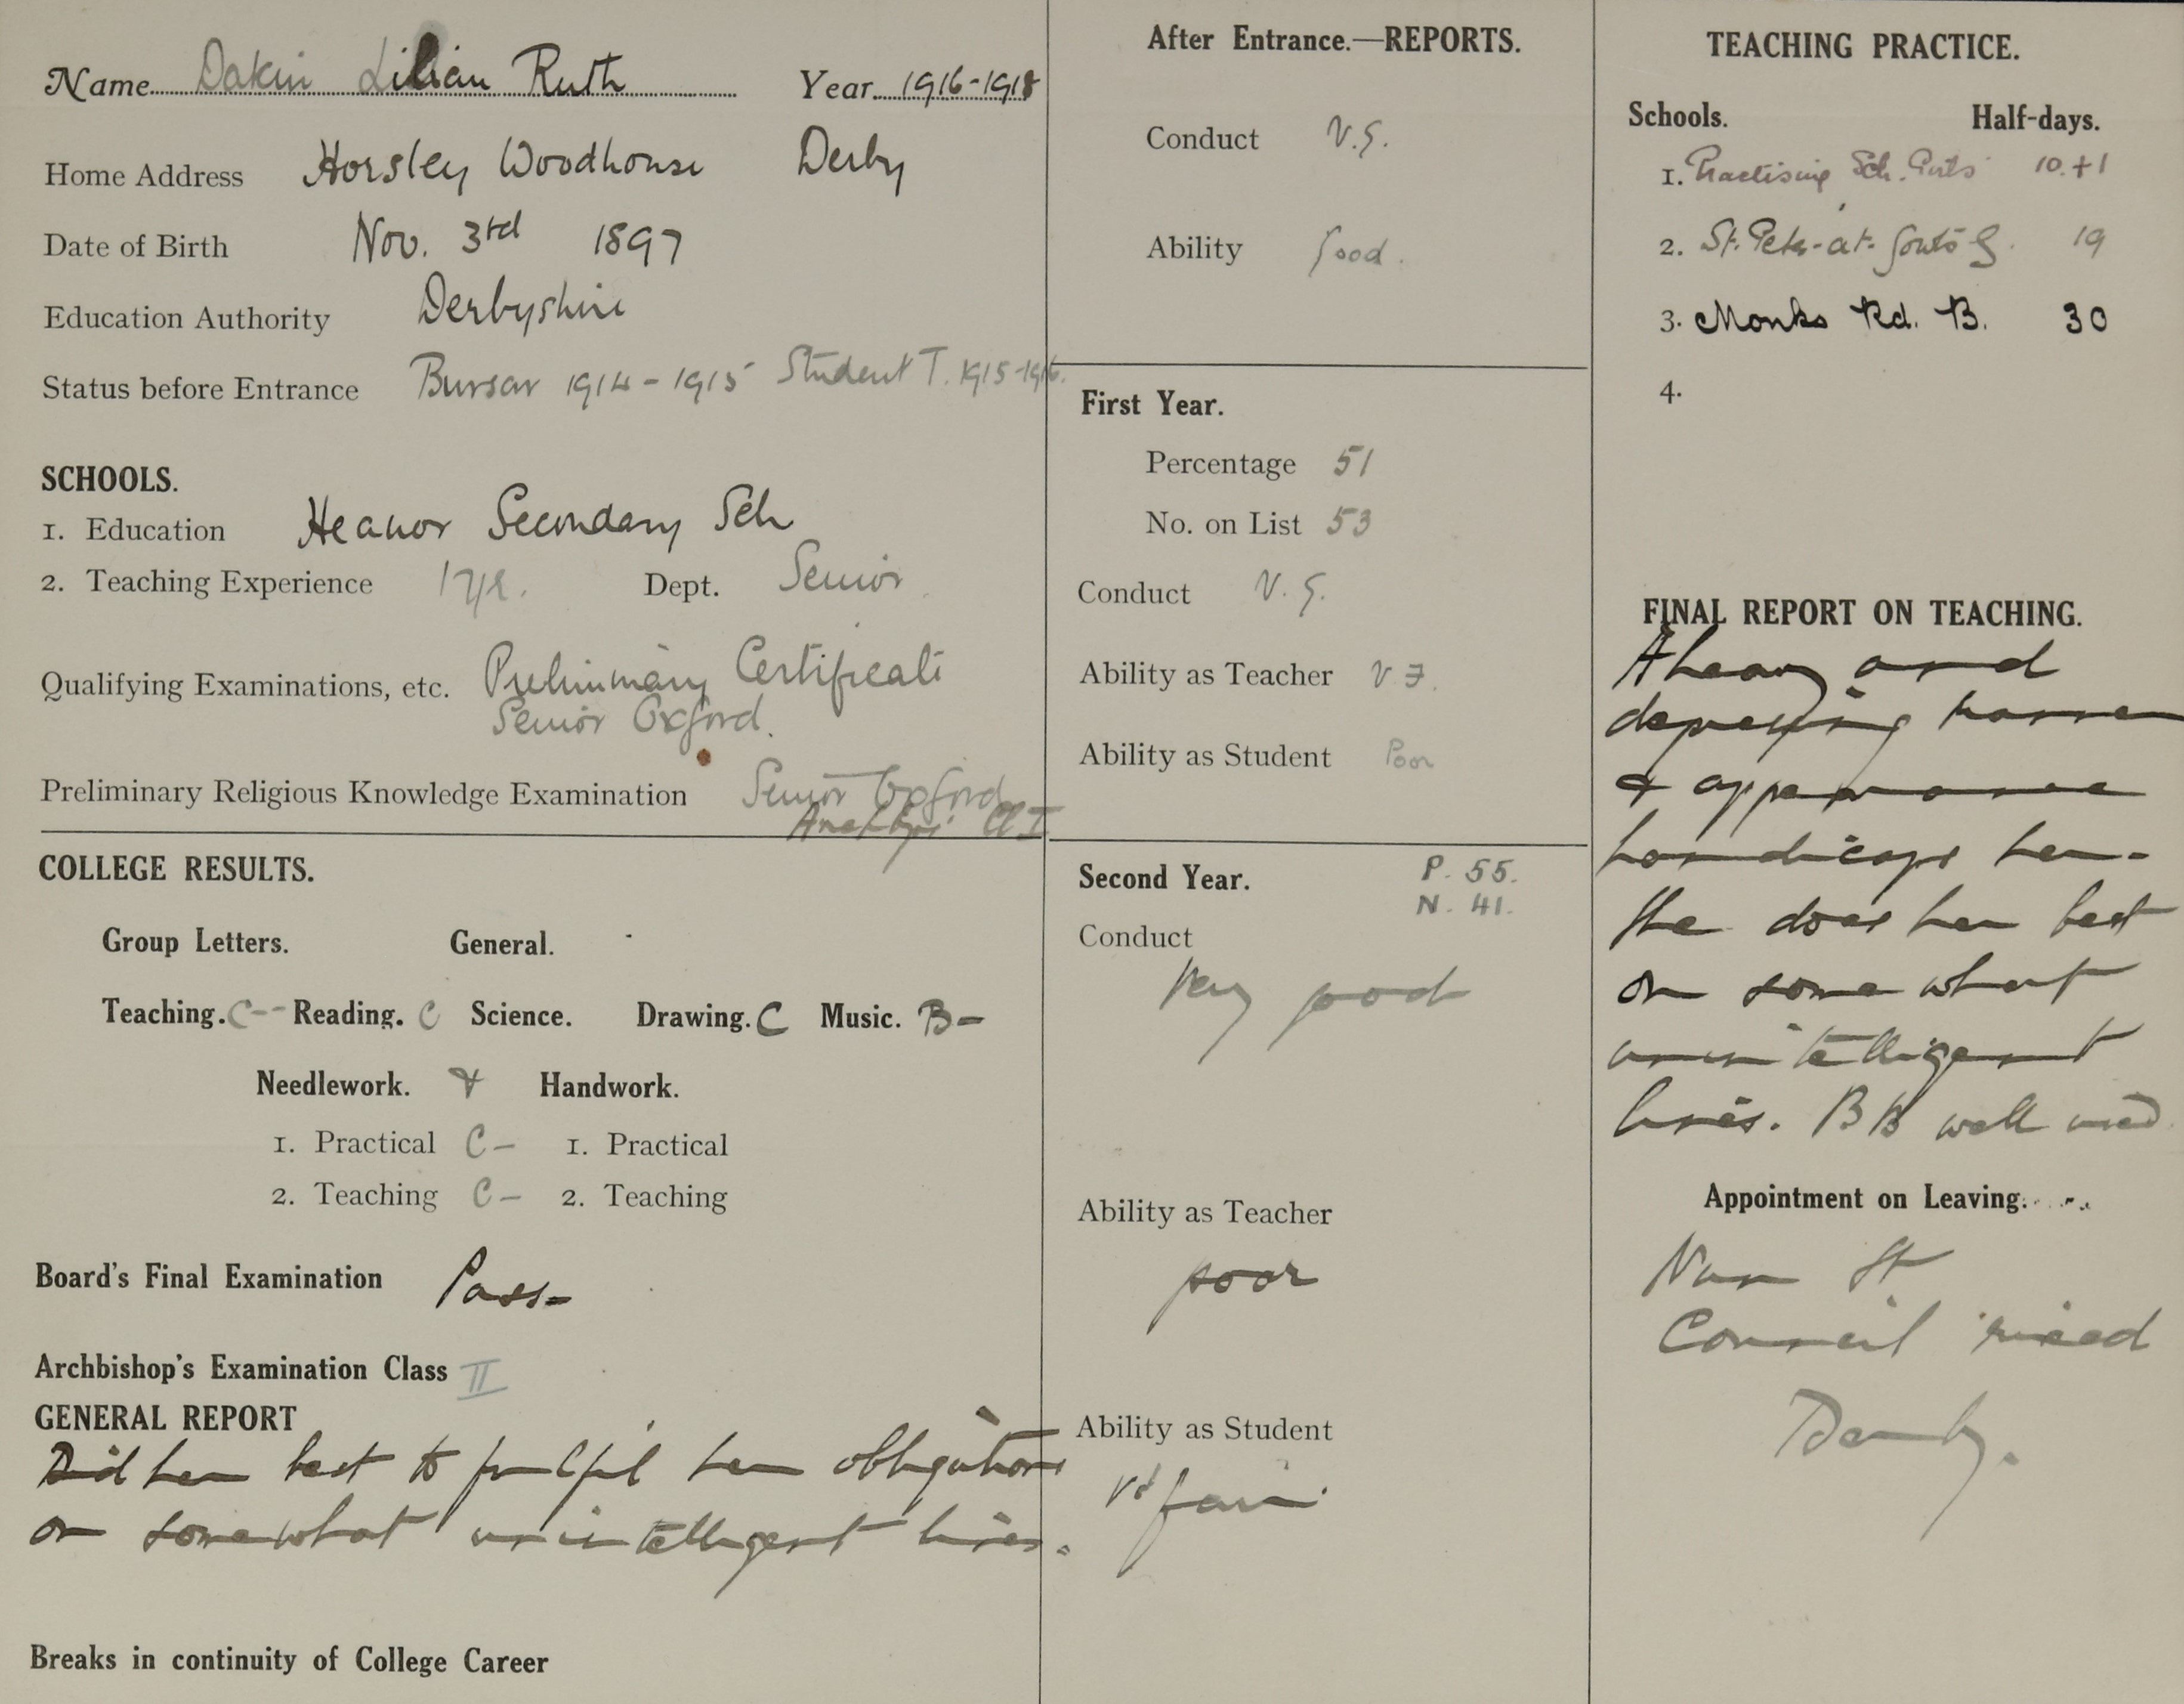 Name Dakin Lilian Ruth Year 1916-1918
Home Address Horsley Woodhouse Derby
Date of Birth Nov. 3rd 1897
Education Authority Derbyshire
Status before Entrance Bursar 1914-1915 Student T. 1915-1916.
SCHOOLS.
1. Education Heanor Secondary Sch
2. Teaching Experience 1 yr. Dept. Senior
Qualifying Examinations, etc. Preliminary Certificate
Senior Oxford.
Preliminary Religious Knowledge Examination Senior Oxford
Archbps' Cl I
COLLEGE RESULTS.
Group Letters. General.
Teaching. C-- Reading. C Science. Drawing. C Music. B-
Needlework. Handwork.
1. Practical C- 1. Practical
2. Teaching C- 2. Teaching
Board's Final Examination Pass-
Archbishop's Examination Class II
GENERAL REPORT
Did her best to fulfil her obligations
on somewhat unintelligent lines.
Breaks in continuity of College Career
After Entrance.—REPORTS.
Conduct V.G.
Ability Good.
First Year.
Percentage 51
No. on List 53
Conduct V.G.
Ability as Teacher V.F.
Ability as Student Poor
Second Year. P. 55.
N. 41.
Conduct
Very good
Ability as Teacher
poor
Ability as Student
fair.
TEACHING PRACTICE.
Schools. Half-days.
1. Practising Sch. Girls 10.+1
2. St. Peter-at-Gowts G. 19
3. Monks Rd. B. 30
4.
FINAL REPORT ON TEACHING.
A heavy and
depressing manner
& appearance
handicaps her-
She does her best
on somewhat
unintelligent
lines. BB well used
Appointment on Leaving.
Nun St
Council
Derby.